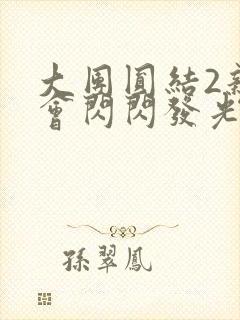 大團圓結2
會閃閃發光
孫翠鳳